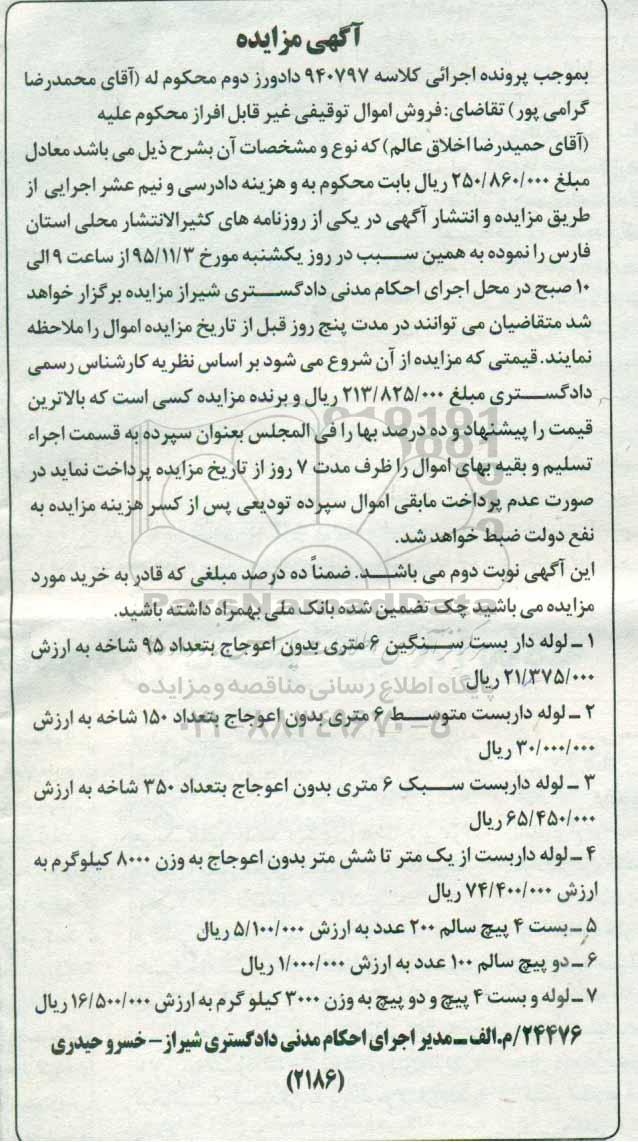 آگهی مزایده
بموجب پرونده اجرائی کلاسه ۹۴۰۷۹۷ دادورز دوم محکوم له (آقای محمدرضا
گرامی پور) تقاضای: فروش اموال توقیفی غیر قابل افراز محکوم علیه
(آقای حمیدرضا اخلاق عالم) که نوع و مشخصات آن بشرح ذیل می باشد معادل
مبلغ ۲۵۰/۸۶۰/۰۰۰ ریال بابت محکوم به و هزینه دادرسی و نیم عشر اجرایی از
طریق مزایده و انتشار آگهی در یکی از روزنامه های کثیرالانتشار محلی استان
فارس را نموده به همین سبب در روز یکشنبه مورخ ۹۵/۱۱/۳ از ساعت ۹ الی
۱۰ صبح در محل اجرای احکام مدنی دادگستری شیراز مزایده برگزار خواهد
شد متقاضیان می توانند در مدت پنج روز قبل از تاریخ مزایده اموال را ملاحظه
نمایند. قیمتی که مزایده از آن شروع می شود بر اساس نظریه کارشناس رسمی
دادگستری مبلغ ۲۱۳/۸۲۵/۰۰۰ ریال و برنده مزایده کسی است که بالاترین
قیمت را پیشنهاد و ده درصد بها را فی المجلس بعنوان سپرده به قسمت اجراء
تسلیم و بقیه بهای اموال را ظرف مدت ۷ روز از تاریخ مزایده پرداخت نماید در
صورت عدم پرداخت مابقی اموال سپرده تودیعی پس از کسر هزینه مزایده به
نفع دولت ضبط خواهد شد.
این آگهی نوبت دوم می باشد. ضمناً ده درصد مبلغی که قادر به خرید مورد
ParsNamadData
مزایده می باشید چک تضمین شده بانک ملی بهمراه داشته باشید.
۱ ـ لوله دار بست سنگین ۶ متری بدون اعوجاج بتعداد ۹۵ شاخه به ارزش
۲۱/۳۷۵/۰۰۰ ریال
پایگاه اطلاع رسانی مناقصه و مزایده
۲ ـ لوله داربست متوسط ۶ متری بدون اعوجاج بتعداد ۱۵۰ شاخه به ارزش
۰۲۱-۸۸۳۴۹۶۷۰-۵
۳۰/۰۰۰/۰۰۰ ریال
۳ ـ لوله داربست سبک ۶ متری بدون اعوجاج بتعداد ۳۵۰ شاخه به ارزش
۶۵/۴۵۰/۰۰۰ ریال
۴ ـ لوله داربست از یک متر تا شش متر بدون اعوجاج به وزن ۸۰۰۰ کیلوگرم به
ارزش ۷۴/۴۰۰/۰۰۰ ریال
۵ ـ بست ۴ پیچ سالم ۲۰۰ عدد به ارزش ۵/۱۰۰/۰۰۰ ریال
۶ ـ دو پیچ سالم ۱۰۰ عدد به ارزش ۱/۰۰۰/۰۰۰ ریال
۷ ـ لوله و بست ۴ پیچ و دو پیچ به وزن ۳۰۰۰ کیلو گرم به ارزش ۱۶/۵۰۰/۰۰۰ ریال
۲۴۴۷۶/م.الف ـ مدیر اجرای احکام مدنی دادگستری شیراز – خسرو حیدری
(۲۱۸۶)